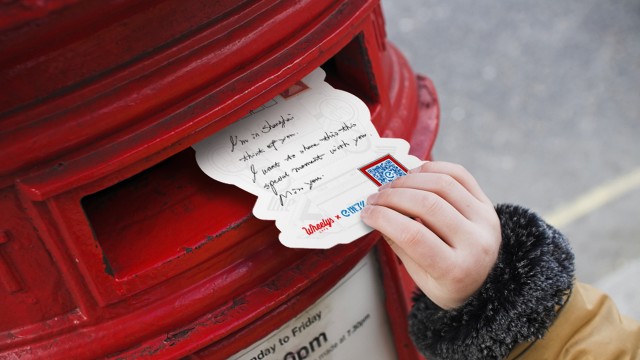 I'm in Shanghai
think of you.
I want to share this this
special moment with you.
Miss you.
Wheelys x
day to Friday
0pm
made at 7.30pm